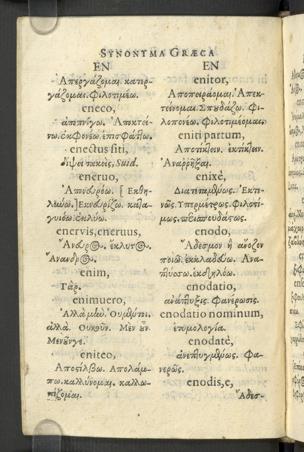 SYNONYMA GRÆCA
EN
Ἀπεργάζομαι. κατερ-
γάζομαι. Φιλοτιμέω.
eneco,
ἀποπνίγω. Ἀποκτεί-
νω.
enectus siti,
Suid.
eneruo,
Ἀπονευρόω. [ Ἐκθη-
λύνω.] Ἐκνευρίζω.
ἐκλύω.
enervis, eneruus,
Ἄνευρος. ἔκλυτος.
Ἄνανδρος.
enim,
Γάρ.
enimuero,
Ἀλλὰ μὲν. Οὐ μέντοι.
ἀλλά. Οὐκοῦν. Μὲν οὖν
Μενοῦνγε.
eniteo,
Ἀποστίλβω. Ἀπολάμ-
πω. καλλύνομαι. καλλω-
πίζομαι.
EN
enitor,
Ἀποπειράομαι. Ἀπεκ-
τείνομαι. Σπουδάζω. Φι-
λοπονέω. Φιλοτιμέομαι.
eniti partum,
Ἀποτίκτειν. ἐκτίκτειν.
enixè,
Διατεταμένως. Ἐκτε-
νῶς. Φιλοτί-
μως.
enodo,
Ἄδεσμον ἢ ἄνοζον
ποιῶ. Ἀνα-
πτύσσω. ἐκδηλόω.
enodatio,
ἀνάπτυξις. Φανέρωσις.
enodatio nominum,
ἐτυμολογία.
enodatè,
ἀνεπτυγμένως. Φα-
νερῶς.
enodis, e,
Ἄδεσ-